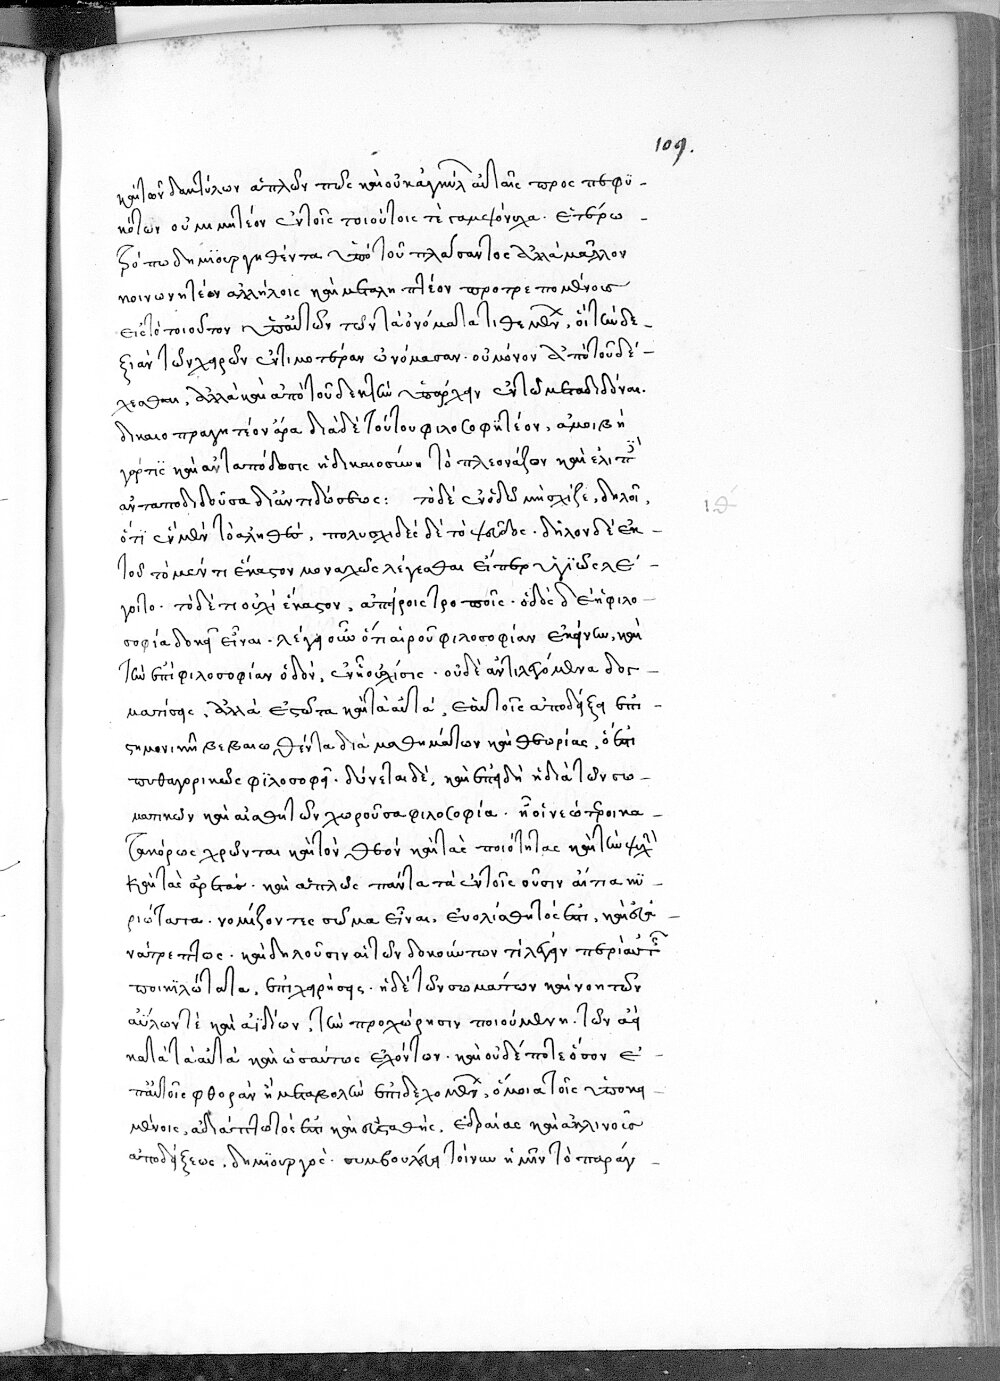 109.
καὶ τῶν δακτύλων ἁπλῶν πως καὶ οὐκ ἀγκύλ αὐταῖς προσπεφϋ-
κότων οὐ μιμητέον ἐν τοῖς τοιούτοις τὲ γαμψόνυχα. ἑτέρω
τρόπω δημϊουργηθέντα ὑπὸ τοῦ πλάσαντος ἀλλὰ μᾶλλον
κοινωνητέον ἀλλήλοις καὶ μεταληπτέον προτρεπομένοις
εἰς τὸ τοιοῦτον ὑπ' αὐτῶν τῶν τὰ ὀνόματα τιθεμέν, οἳ τὴν δε-
ξιὰν τῶν χειρῶν ἐντιμοτέραν ὠνόμασαν. οὐ μόνον ἀπὸ τοῦ δέ-
χεσθαι, ἀλλὰ καὶ ἀπὸ τοῦ δεκτὴν ὑπάρχειν ἐν τῶ μεταδιδόναι.
δικαιοπραγητέον ἄρα διὰ δὲ τούτου φιλοσοφητέον, ἀμοιβὴ
γάρ τις καὶ ἀνταπόδοσις ἡ δικαιοσύνη τὸ πλεονάζον καὶ ἐλιπ
ἀνταποδιδοῦσα δι' ἀντιδόσεως: τὸ δὲ ἐν ὁδῶ μὴ σχίζε, δηλοῖ,
ιθ´
ὅτι ἓν μὲν τὸ ἀληθὲς, πολυσχιδὲς δὲ τὸ ψεῦδος. δῆλον δὲ ἐκ
τοῦ τὸ μὲν τι ἕκαστον μοναχῶς λέγεσθαι εἴπερ ὑγιῶς λέ-
γοιτο. τὸ δὲ τι οὐχὶ ἕκαστον, ἀπείροις τρόποις. ὁδὸς δὲ ἡ φιλο-
σοφία δοκεῖ εἶναι. λέγει οὖν ὅτι αἱροῦ φιλοσοφίαν ἐκείνην, καὶ
τὴν ἐπὶ φιλοσοφίαν ὁδὸν, ἐν ἧ οὐ σχίσις. οὐδὲ ἀντιλεγόμενα δογ-
ματίσεις, ἀλλὰ ἑστῶτα καὶ τὰ αὐτὰ, ἑαυτοῖς ἀποδείξει ἐπι-
στημονικῆ βεβαιωθέντα διὰ μαθημάτων καὶ θεωρίας, ὅ ἐστι
πυθαγορικῶς φϊλοσόφει. δύνεται δὲ, καὶ ἐπειδὴ ἡ διὰ τῶν σω-
ματικῶν καὶ αἰσθητῶν χωροῦσα φιλοσοφία. ἧ οἱ νεώτεροι κα-
τακόρως χρῶνται καὶ τὸν θεὸν καὶ τὰς ποιότητας καὶ τὴν ψυχὴ
καὶ τὰς ἀρετὰς. καὶ ἁπλῶς πάντα τὰ ἐν τοῖς οὖσιν αἴτια κϋ-
ριώτατα. νομίζοντες σῶμα εἶναι, εὐόλισθητός ἐστι, καὶ εὐα
νάτρεπτος. καὶ δηλοῦσιν αὐτῶν δοκούντων τὶ λέγειν περὶ αὐτ
ποικιλώταται, ἐπιχειρήσεις. ἡ δὲ τῶν σωμάτων καὶ νοητῶν
ἀΰλων τὲ καὶ ἀϊδίων, τὴν προχώρησιν ποιουμένη. τῶν ἀεὶ
κατὰ τὰ αὐτὰ καὶ ὡσαύτως ἐχόντων. καὶ οὐδέποτε ὅσον ἐ-
π' αὐτοῖς φθορὰν ἢ μεταβολὴν ἐπιδεχομέν, ὁμοία τοῖς ὑποκει
μένοις, ἀδιάπτωτός ἐστι καὶ εὐσταθὴς, ἑδραίας καὶ ἀκλινοῦς
ἀποδείξεως, δημϊουργὸς. συμβουλεύει τοίνυν ἡμῖν τὸ παράγ-